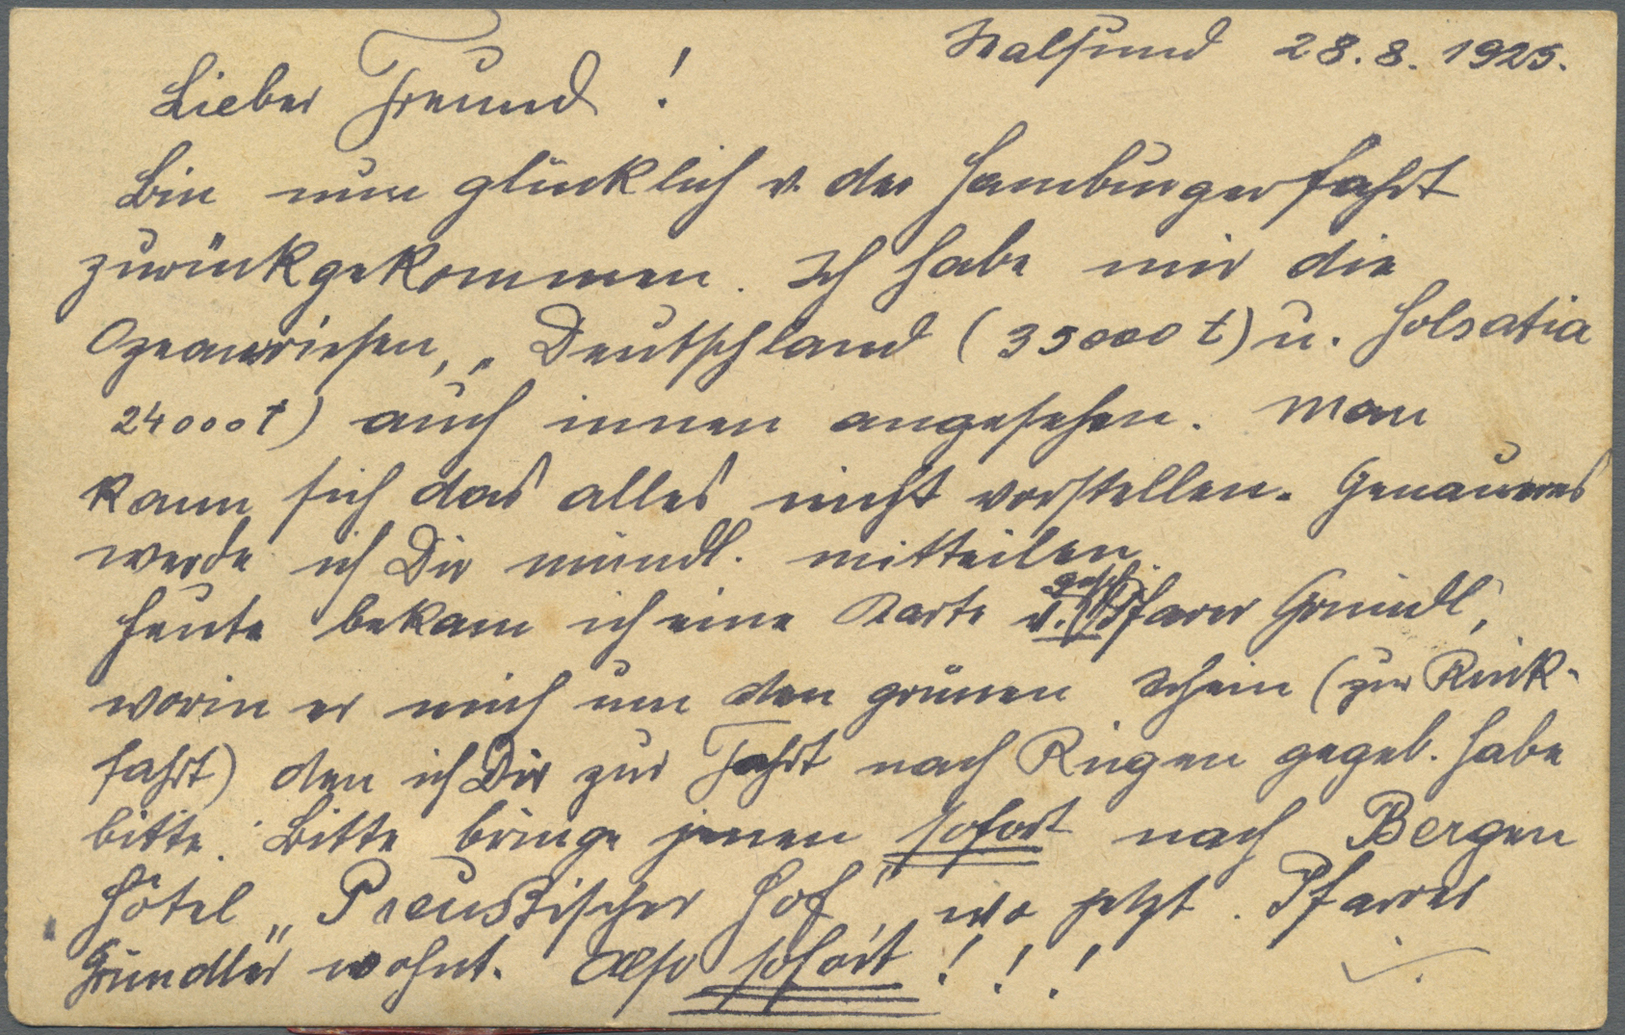 Stralsund 28.8.1925.
Lieber Freund!
Bin nun glücklich v. der Hamburgerfahrt
zurückgekommen. Ich habe mir die
Ozeanriesen, „Deutschland (35000 t) u. Holsatia
24000 t) auch innen angesehen. Man
kann sich das alles nicht vorstellen. Genaueres
werde ich Dir mündl. mitteilen.
Heute bekam ich eine Karte v. Pfarrer Gründl,
worin er mich um den grünen Schein (zur Rück-
fahrt) den ich Dir zur Fahrt nach Rügen gegeb. habe
bitte. Bitte bringe jenen sofort nach Bergen
Hôtel „Preussischer Hof", wo jetzt Pfarrer
Gründler wohnt. Also sofort!!!